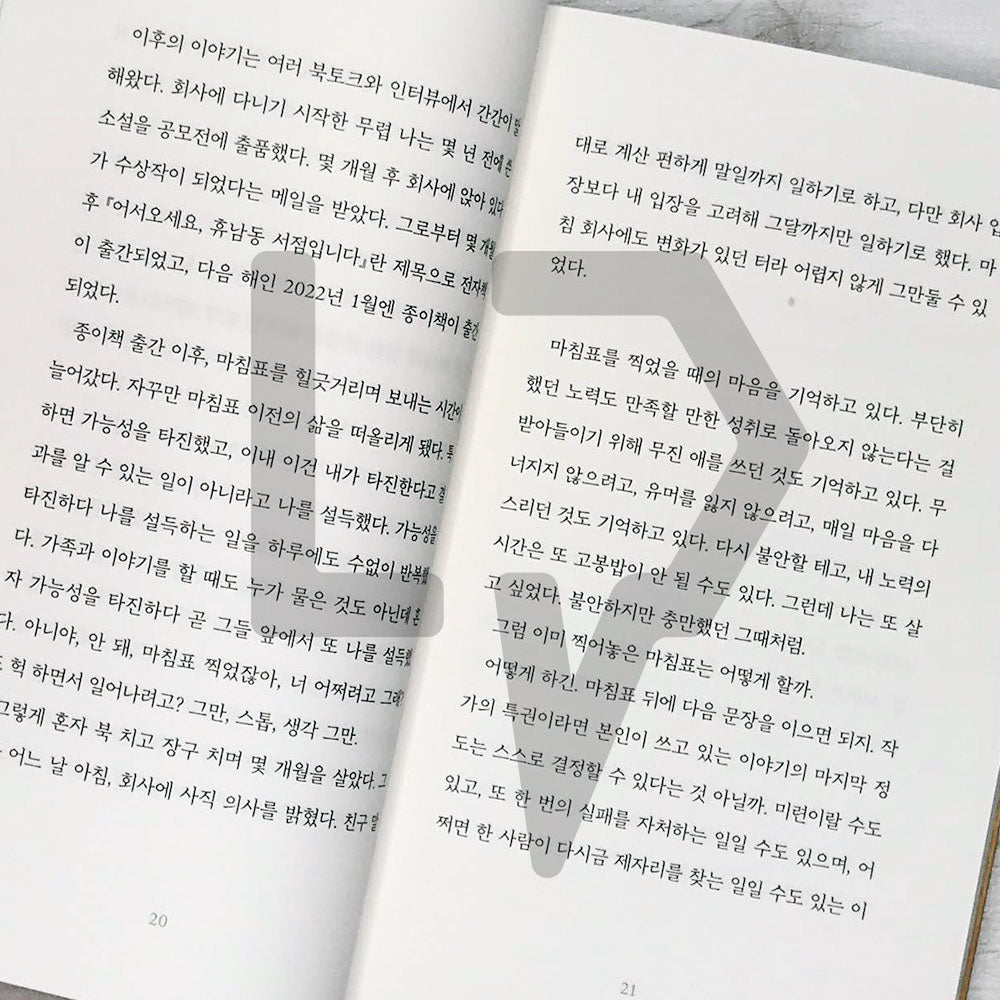 이후의 이야기는 여러 북토크와 인터뷰에서 간간이 말
해왔다. 회사에 다니기 시작한 무렵 나는 몇 년 전에 쓴
소설을 공모전에 출품했다. 몇 개월 후 회사에 앉아 있다
가 수상작이 되었다는 메일을 받았다. 그로부터 몇 개월
후 『어서오세요, 휴남동 서점입니다』란 제목으로 전자책
이 출간되었고, 다음 해인 2022년 1월엔 종이책이 출간
되었다.
종이책 출간 이후, 마침표를 힐긋거리며 보내는 시간이
늘어갔다. 자꾸만 마침표 이전의 삶을 떠올리게 됐다. 툭
하면 가능성을 타진했고, 이내 이건 내가 타진한다고 결
과를 알 수 있는 일이 아니라고 나를 설득했다. 가능성을
타진하다 나를 설득하는 일을 하루에도 수없이 반복했
다. 가족과 이야기를 할 때도 누가 물은 것도 아닌데 혼
자 가능성을 타진하다 곧 그들 앞에서 또 나를 설득했
다. 아니야, 안 돼, 마침표 찍었잖아, 너 어쩌려고 그래?
헉 하면서 일어나려고? 그만, 스톱, 생각 그만.
그렇게 혼자 북 치고 장구 치며 몇 개월을 살았다. 그
어느 날 아침, 회사에 사직 의사를 밝혔다. 친구 말
20
대로 계산 편하게 말일까지 일하기로 하고, 다만 회사 입
장보다 내 입장을 고려해 그달까지만 일하기로 했다. 마
침 회사에도 변화가 있던 터라 어렵지 않게 그만둘 수 있
었다.
마침표를 찍었을 때의 마음을 기억하고 있다. 부단히
했던 노력도 만족할 만한 성취로 돌아오지 않는다는 걸
받아들이기 위해 무진 애를 쓰던 것도 기억하고 있다. 무
너지지 않으려고, 유머를 잃지 않으려고, 매일 마음을 다
스리던 것도 기억하고 있다. 다시 불안할 테고, 내 노력의
시간은 또 고봉밥이 안 될 수도 있다. 그런데 나는 또 살
고 싶었다. 불안하지만 충만했던 그때처럼.
그럼 이미 찍어놓은 마침표는 어떻게 할까.
어떻게 하긴. 마침표 뒤에 다음 문장을 이으면 되지. 작
가의 특권이라면 본인이 쓰고 있는 이야기의 마지막 정
도는 스스로 결정할 수 있다는 것 아닐까. 미련이랄 수도
있고, 또 한 번의 실패를 자처하는 일일 수도 있으며, 어
쩌면 한 사람이 다시금 제자리를 찾는 일일 수도 있는 이
21